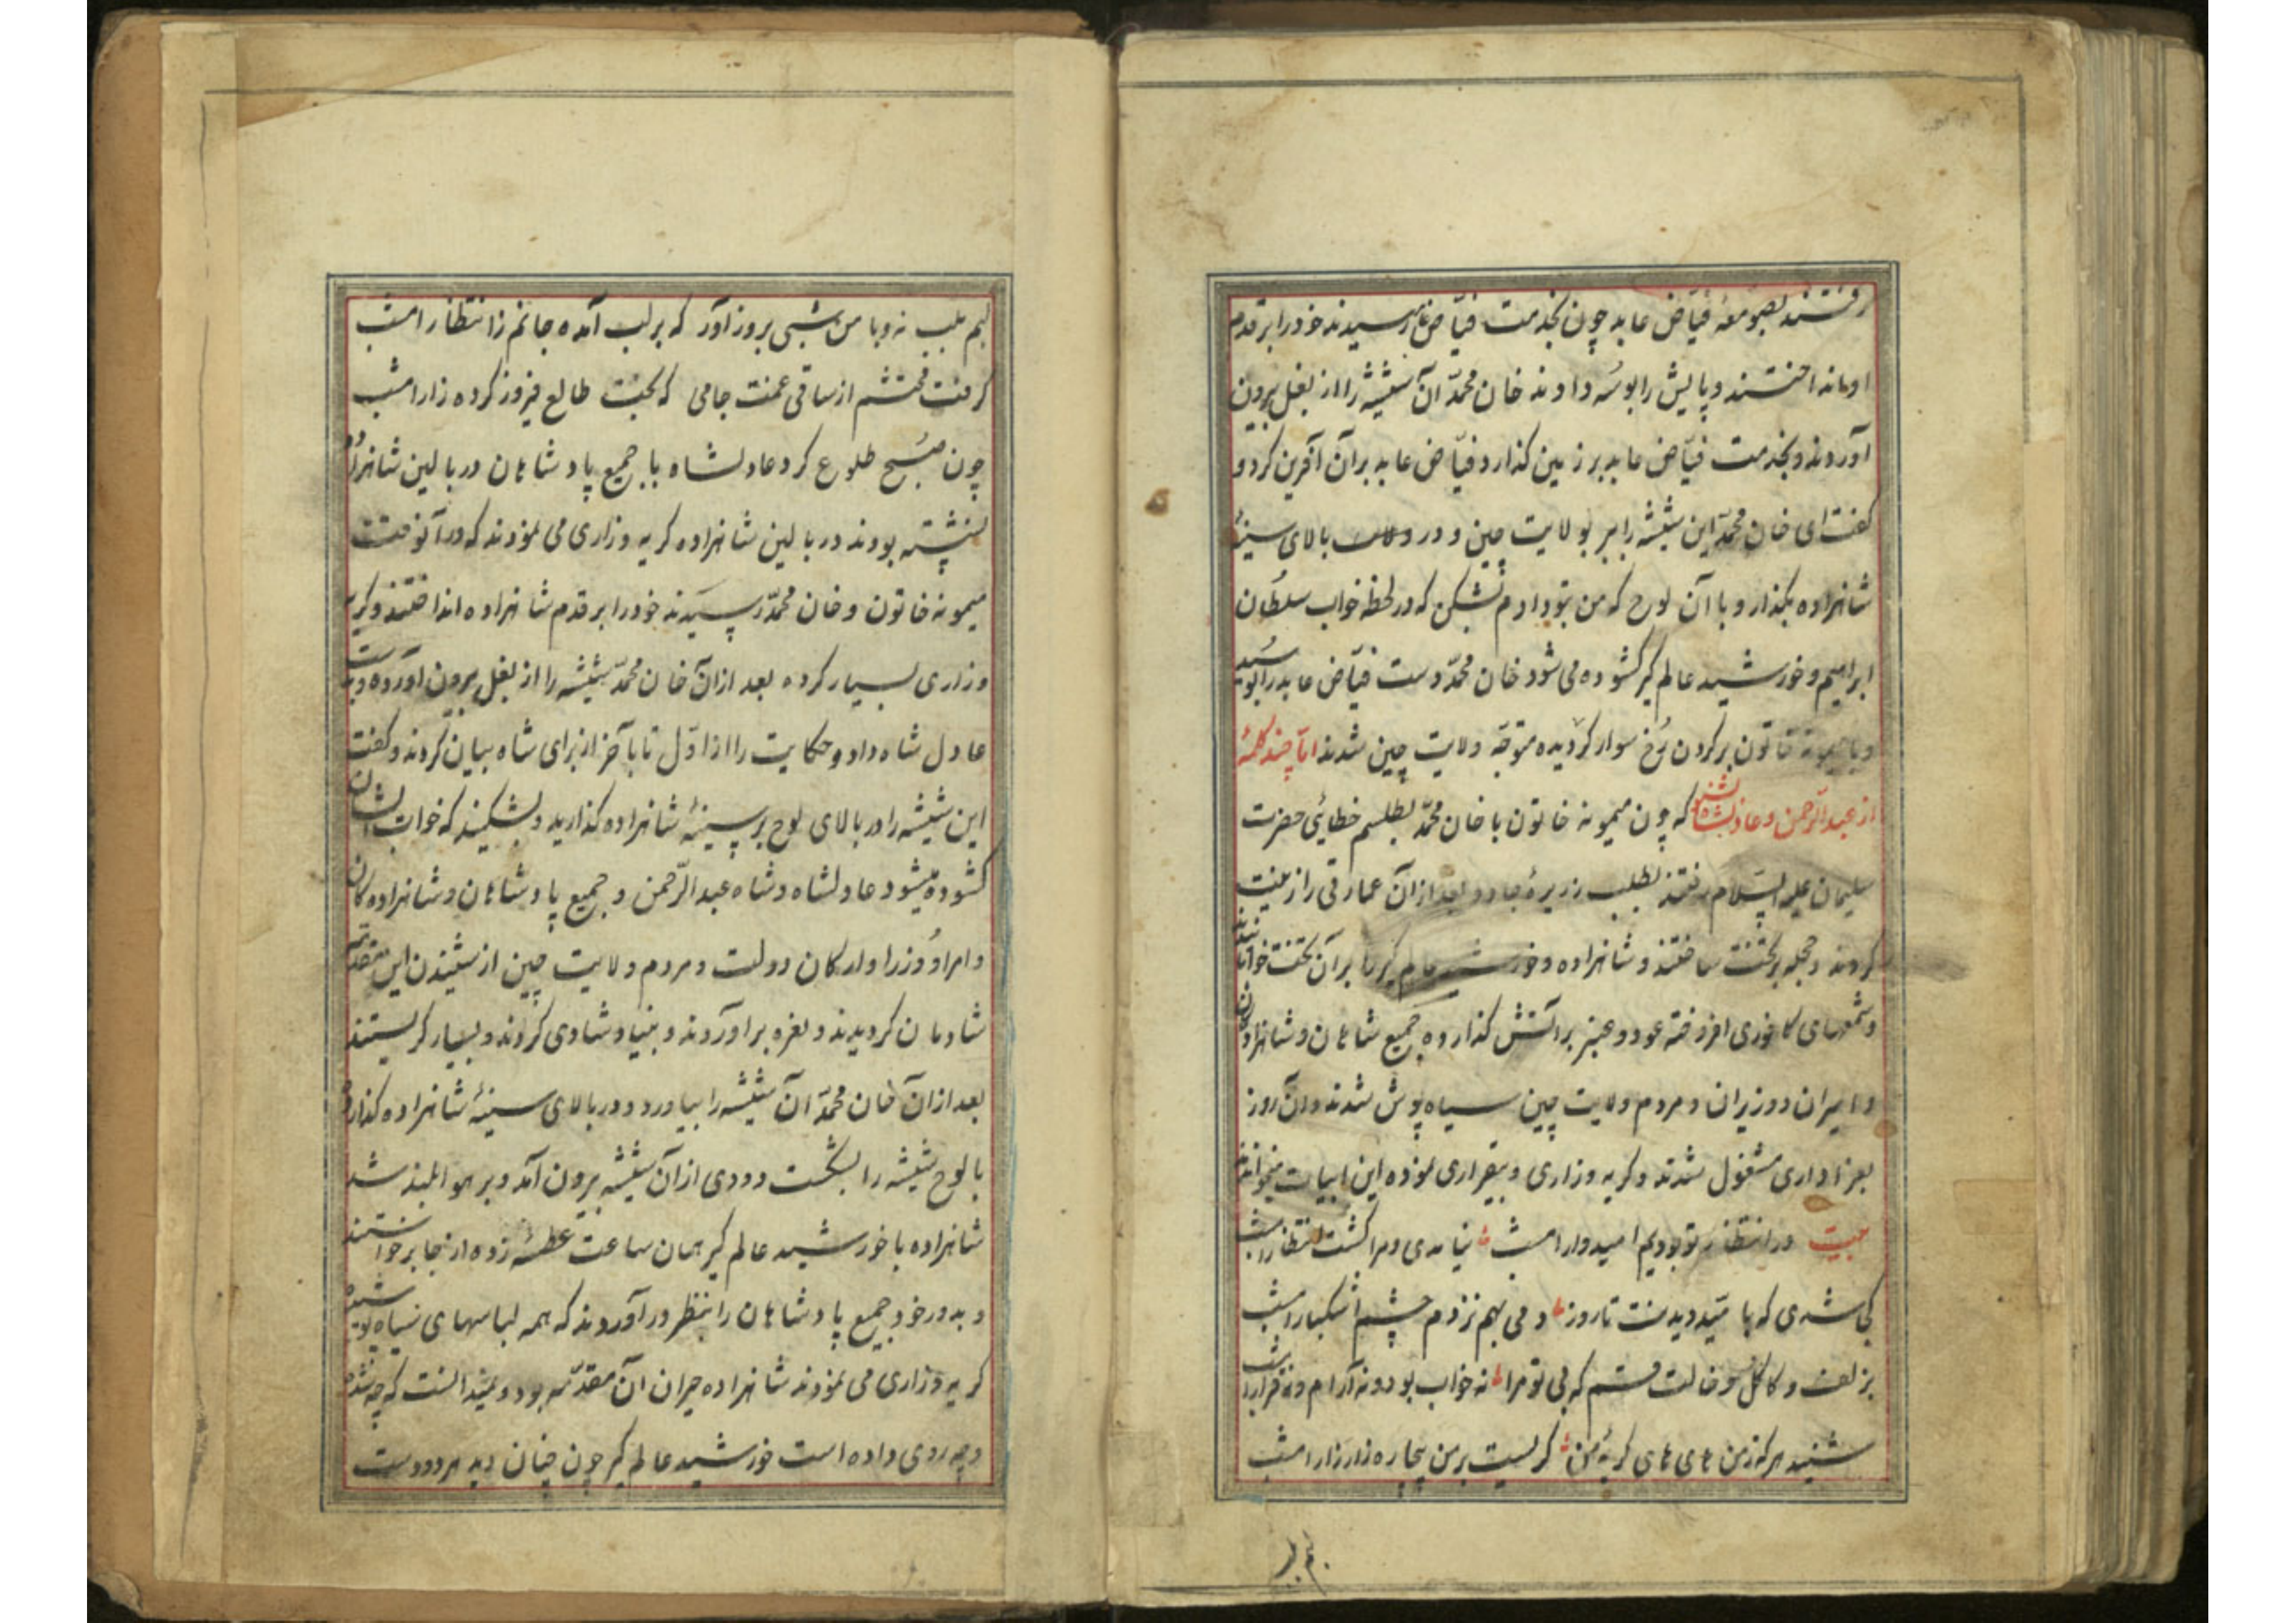 رفتند بصومعهٔ فیّاض عابد چون بخدمت فیّاض رسیدند خود را بر قدم
او انداختند و پایش را بوسه دادند خان محمّد آن شیشه را از بغل بیرون
آوردند و بخدمت فیّاض عابد بر زمین کذارد فیّاض عابد بر آن آفرین کرد و
کفت ای خان محمّد این شیشه را ببر بولایت چین و در بالای سینهٔ
شاهزاده بکذار و با آن لوح که من بتو دادم بشکن که در لحظه خواب سلطان
ابراهیم و خورشید عالم کیر کشوده می شود خان محمّد دست فیّاض عابد را بوسید
و با میمونه خاتون بر کردن رُخ سوار کردیده متوجّه ولایت چین شدند امّا چند کلمهٔ
از عبدالرّحمن و عادلشاه بشنو که چون میمونه خاتون با خان محمّد بطلسم خطائی حضرت
سلیمان علیه السّلام رفتند بطلب زریرهٔ جادو بعد از آن عمارتی را زینت
کردند و حجله بر تخت ساختند و شاهزاده و خورشید عالم کیر را بر آن تخت خوابانیدند
و شمعهای کافوری افروخته عود و عنبر بر آتش کذارده جمیع شاهان و شاهزادکان
و امیران و وزیران و مردم ولایت چین سیاه پوش شدند و آن روز
بعزاداری مشغول شدند و کریه و زاری و بیقراری نموده این ابیات میخواندند
بیت در انتظار تو بودیم امیدوار امشب نیامدی و مرا کشت انتظار امشب
کی شدی که بامّید دیدنت تا روز و می بهم نزدم چشم اشکبار امشب
بزلف و کاکل و خالت قسم که بی تو مرا نه خواب بود و نه آرام و نه قرار امشب
شنید هر که ز من های های کریهٔ من کریست بر من بیچاره زار زار امشب
لبم بلب نه و با من شبی بروز آور که بر لب آمده جانم ز انتظار امشب
کرفت محتشم از ساقی غمت جامی که بخت طالع فیروز کرده زار امشب
چون صبح طلوع کرد عادلشاه با جمیع پادشاهان در بالین شاهزاده
نشسته بودند در بالین شاهزاده کریه و زاری می نمودند که در آنوقت
میمونه خاتون و خان محمّد رسیدند خود را بر قدم شاهزاده انداختند و کریه
و زاری بسیار کرده بعد از آن خان محمّد شیشه را از بغل بیرون آورده و بدست
عادل شاه داد و حکایت را از اوّل تا بآخر از برای شاه بیان کردند و کفت
این شیشه را در بالای لوح بر سینهٔ شاهزاده کذارید و بشکنید که خواب ایشان
کشوده میشود عادلشاه و شاه عبدالرّحمن و جمیع پادشاهان و شاهزاده کان
و امرا و وزرا و ارکان دولت و مردم ولایت چین از شنیدن این مقدّمه
شادمان کردیدند و نعره بر آوردند و بنیاد شادی کردند و بسیار کریستند
بعد از آن خان محمّد آن شیشه را بیاورد و در بالای سینهٔ شاهزاده کذارد
با لوح شیشه را بشکست دودی از آن شیشه بیرون آمد و بر هوا بلند شد
شاهزاده با خورشید عالم کیر همان ساعت عطسهٔ زده از جا برخواستند
و بدور خود جمیع پادشاهان را بنظر در آوردند که همه لباسهای سیاه پوشیده
کریه و زاری می نمودند شاهزاده حیران آن مقدّمه بود و نمیدانست که چه شده
و چه روی داده است خورشید عالم کیر چون چنان دید هر دو دست